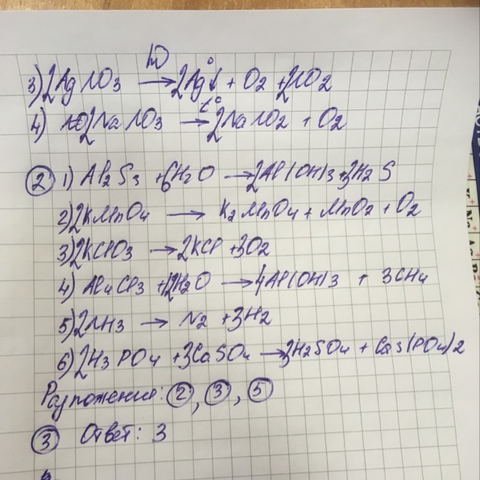 hν
3) 2AgNO3 → 2Ag↓ + O2 + 2NO2
4) 2NaNO3 t° → 2NaNO2 + O2
② 1) Al2S3 + 6H2O → 2Al(OH)3 + 3H2S
2) 2KMnO4 → K2MnO4 + MnO2 + O2
3) 2KClO3 → 2KCl + 3O2
4) Al4C3 + 12H2O → 4Al(OH)3 + 3CH4
5) 2NH3 → N2 + 3H2
6) 2H3PO4 + 3CaSO4 → 3H2SO4 + Ca3(PO4)2
Разложения: ②, ③, ⑤
③ Ответ: 3